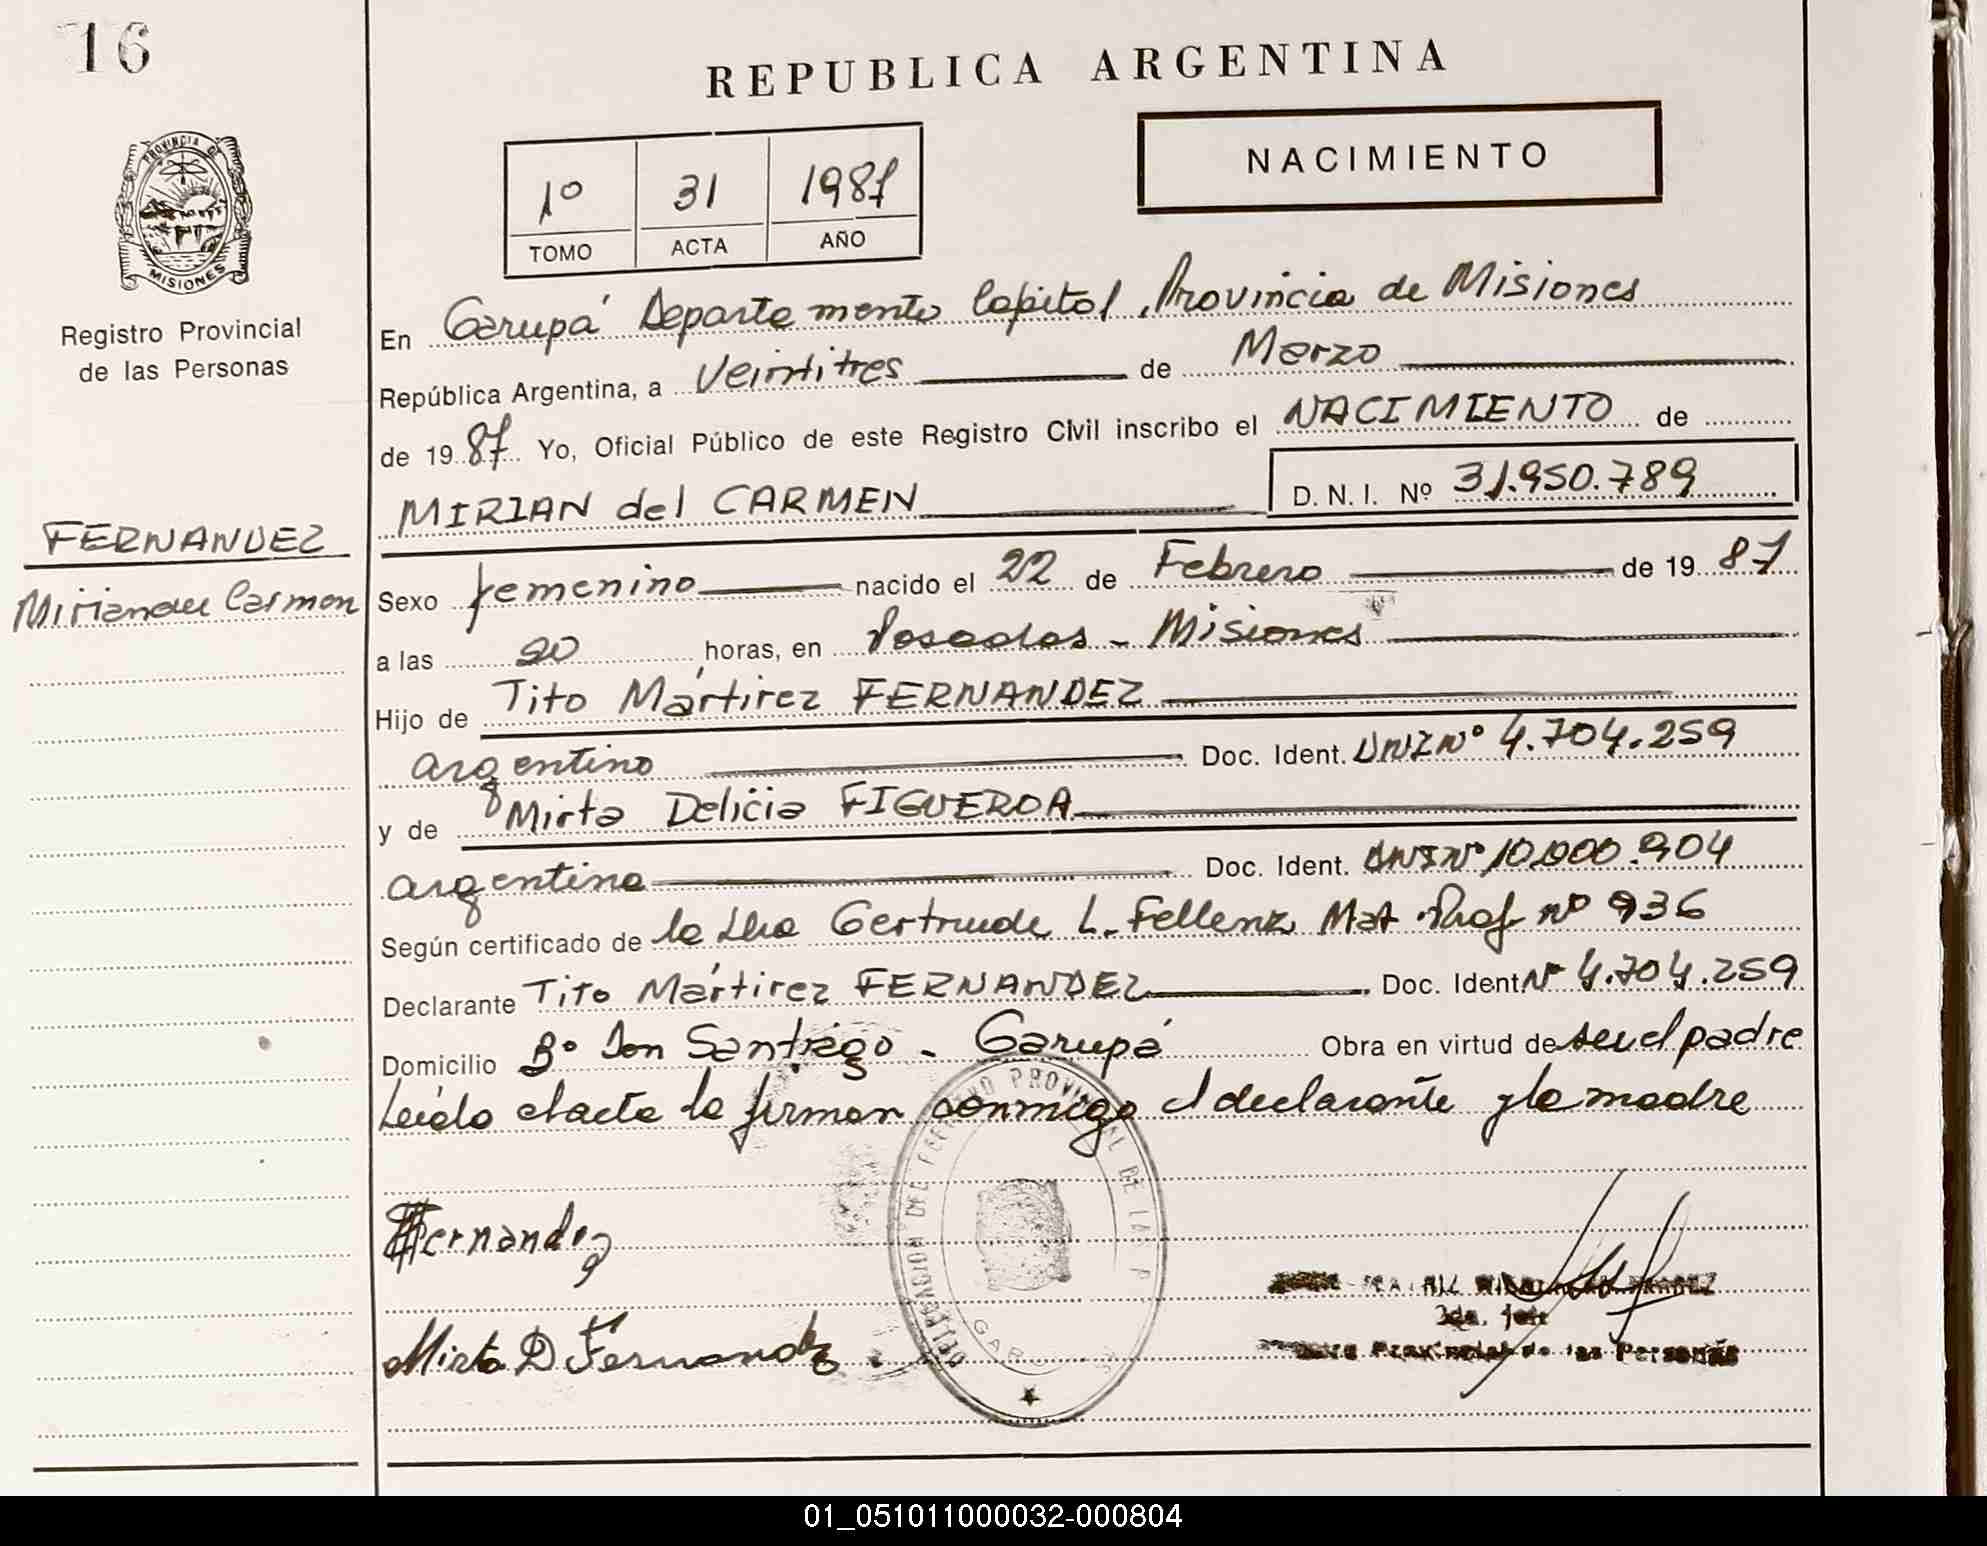 16
REPUBLICA ARGENTINA
NACIMIENTO
1º 31 1987
TOMO ACTA AÑO
PROVINCIA DE
MISIONES
Registro Provincial
de las Personas
En Garupá Departamento Capital, Provincia de Misiones
República Argentina, a veintitres de Marzo
de 1987 Yo, Oficial Público de este Registro Civil inscribo el NACIMIENTO de
MIRIAN del CARMEN D.N.I. Nº 31.950.789
FERNANDEZ
Mirian del Carmen
Sexo femenino nacido el 22 de Febrero de 1987
a las 20 horas, en Posadas - Misiones
Hijo de Tito Mártirez FERNANDEZ
argentino Doc. Ident. DNI Nº 4.704.259
y de Mirta Delicia FIGUEROA
argentina Doc. Ident. DNI Nº 10.000.904
Según certificado de la Gertrude L. Fellenz Mat. Prof nº 936
Declarante Tito Mártirez FERNANDEZ Doc. Ident Nº 4.704.259
Domicilio Bº Don Santiago - Garupá Obra en virtud de ser el padre
Leída el acta la firman conmigo el declarante y la madre
Fernandez
Mirta D F Fernandez
DELEGACION DEL REGISTRO PROVINCIAL DE LAS P
GAR
2da. Jefe
Provincial de las Personas
01_051011000032-000804